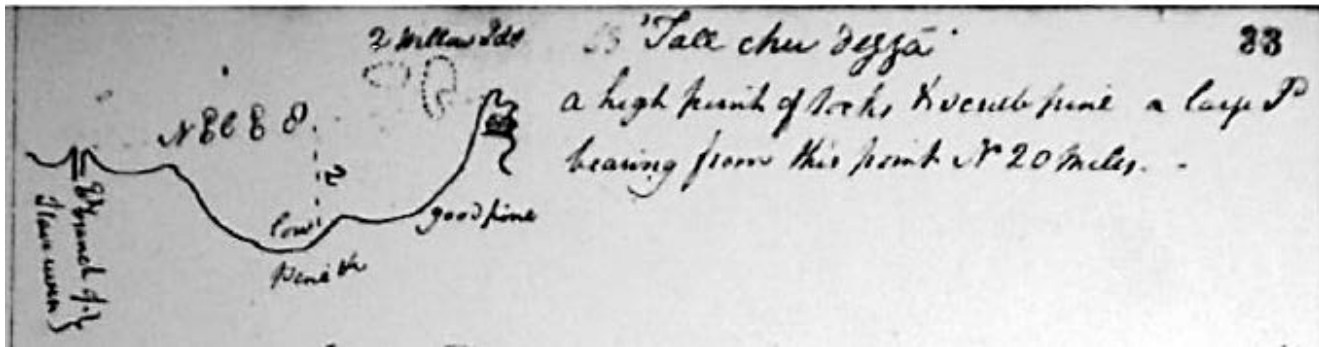 2 Willow Ids
'Tall chu dezza' 33
a high point of rocks & scrub pine a large Id
bearing from this point N 20 miles.
N E b E 8
2
low
Pine &c
good pine
E branch of
Slave river